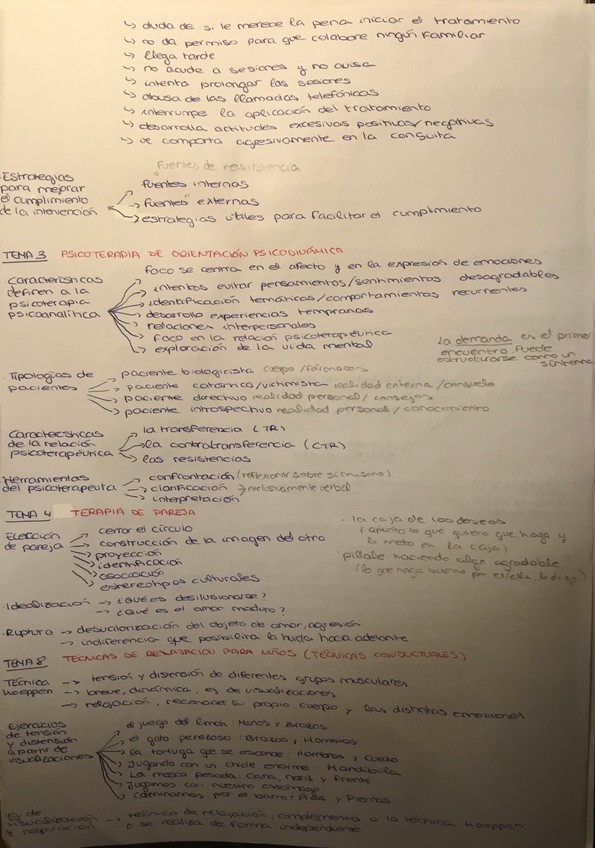 ↳ duda de si le merece la pena iniciar el tratamiento
↳ no da permiso para que colabore ningún familiar
↳ llega tarde
↳ no acude a sesiones y no avisa
↳ intenta prolongar las sesiones
↳ abusa de las llamadas telefónicas
↳ interrumpe la aplicación del tratamiento
↳ desarrolla actitudes excesivas positivas/negativas
↳ se comporta agresivamente en la consulta
Fuentes de resistencia
Estrategias para mejorar el cumplimiento de la intervención
fuentes internas
fuentes externas
estrategias útiles para facilitar el cumplimiento
TEMA 3 PSICOTERAPIA DE ORIENTACIÓN PSICODINÁMICA
Características definen a la psicoterapia psicoanalítica
foco se centra en el afecto y en la expresión de emociones
intentos evitar pensamientos/sentimientos desagradables
identificación temáticas/comportamientos recurrentes
desarrollo experiencias tempranas
relaciones interpersonales
foco en la relación psicoterapéutica
exploración de la vida mental
la demanda en el primer
encuentro puede
estructurarse como un
síntoma
Tipologías de pacientes
paciente biologicista cuerpo/fármacos
paciente catártico/victimista realidad externa/consuelo
paciente directivo realidad personal/consejos
paciente introspectivo realidad personal/conocimiento
Características de la relación psicoterapéutica
la transferencia (TR)
la contratransferencia (CTR)
las resistencias
Herramientas del psicoterapeuta
confrontación (reflexionar sobre si mismo)
clarificación exclusivamente verbal
interpretación
TEMA 4 TERAPIA DE PAREJA
Elección de pareja
cerrar el círculo
construcción de la imagen del otro
proyección
identificación
asociación
estereotipos culturales
· la caja de los deseos
(apunto lo que quiero que haga y
lo meto en la caja)
píllale haciendo algo agradable
Idealización → ¿Qué es desilusionarse?
→ ¿Qué es el amor maduro?
Ruptura → desvalorización del objeto de amor, agresión
→ indiferencia que posibilita la huida hacia adelante
TEMA 8 TÉCNICAS DE RELAJACIÓN PARA NIÑOS (TÉCNICAS CONDUCTUALES)
Técnica Koeppen
→ tensión y distensión de diferentes grupos musculares
→ breve, dinámica, ej. de visualizaciones
→ relajación, reconocer su propio cuerpo y las distintas emociones
Ejercicios de tensión y distensión a partir de visualizaciones
el juego del limón: Manos y Brazos
el gato perezoso: Brazos y Hombros
la tortuga que se esconde: Hombros y Cuello
Jugando con un chicle enorme: Mandíbula
La mosca pesada: Cara, nariz y Frente
Jugamos con nuestro estómago
Caminamos por el barro: Pies y Piernas
Ej de visualización y respiración
→ técnica de relajación: complementa a la técnica Koeppen,
o se realiza de forma independiente